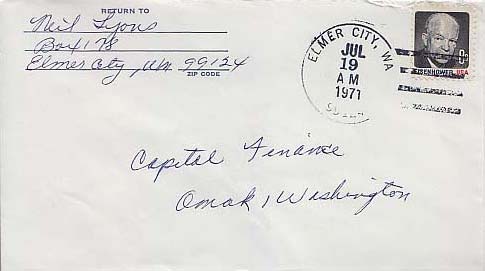 RETURN TO
Neil Lyons
Box 178
Elmer City, Wn 99124
ZIP CODE
ELMER CITY, WA
JUL
19
AM
1971
EISENHOWER USA
Capital Finance
Omak, Washington